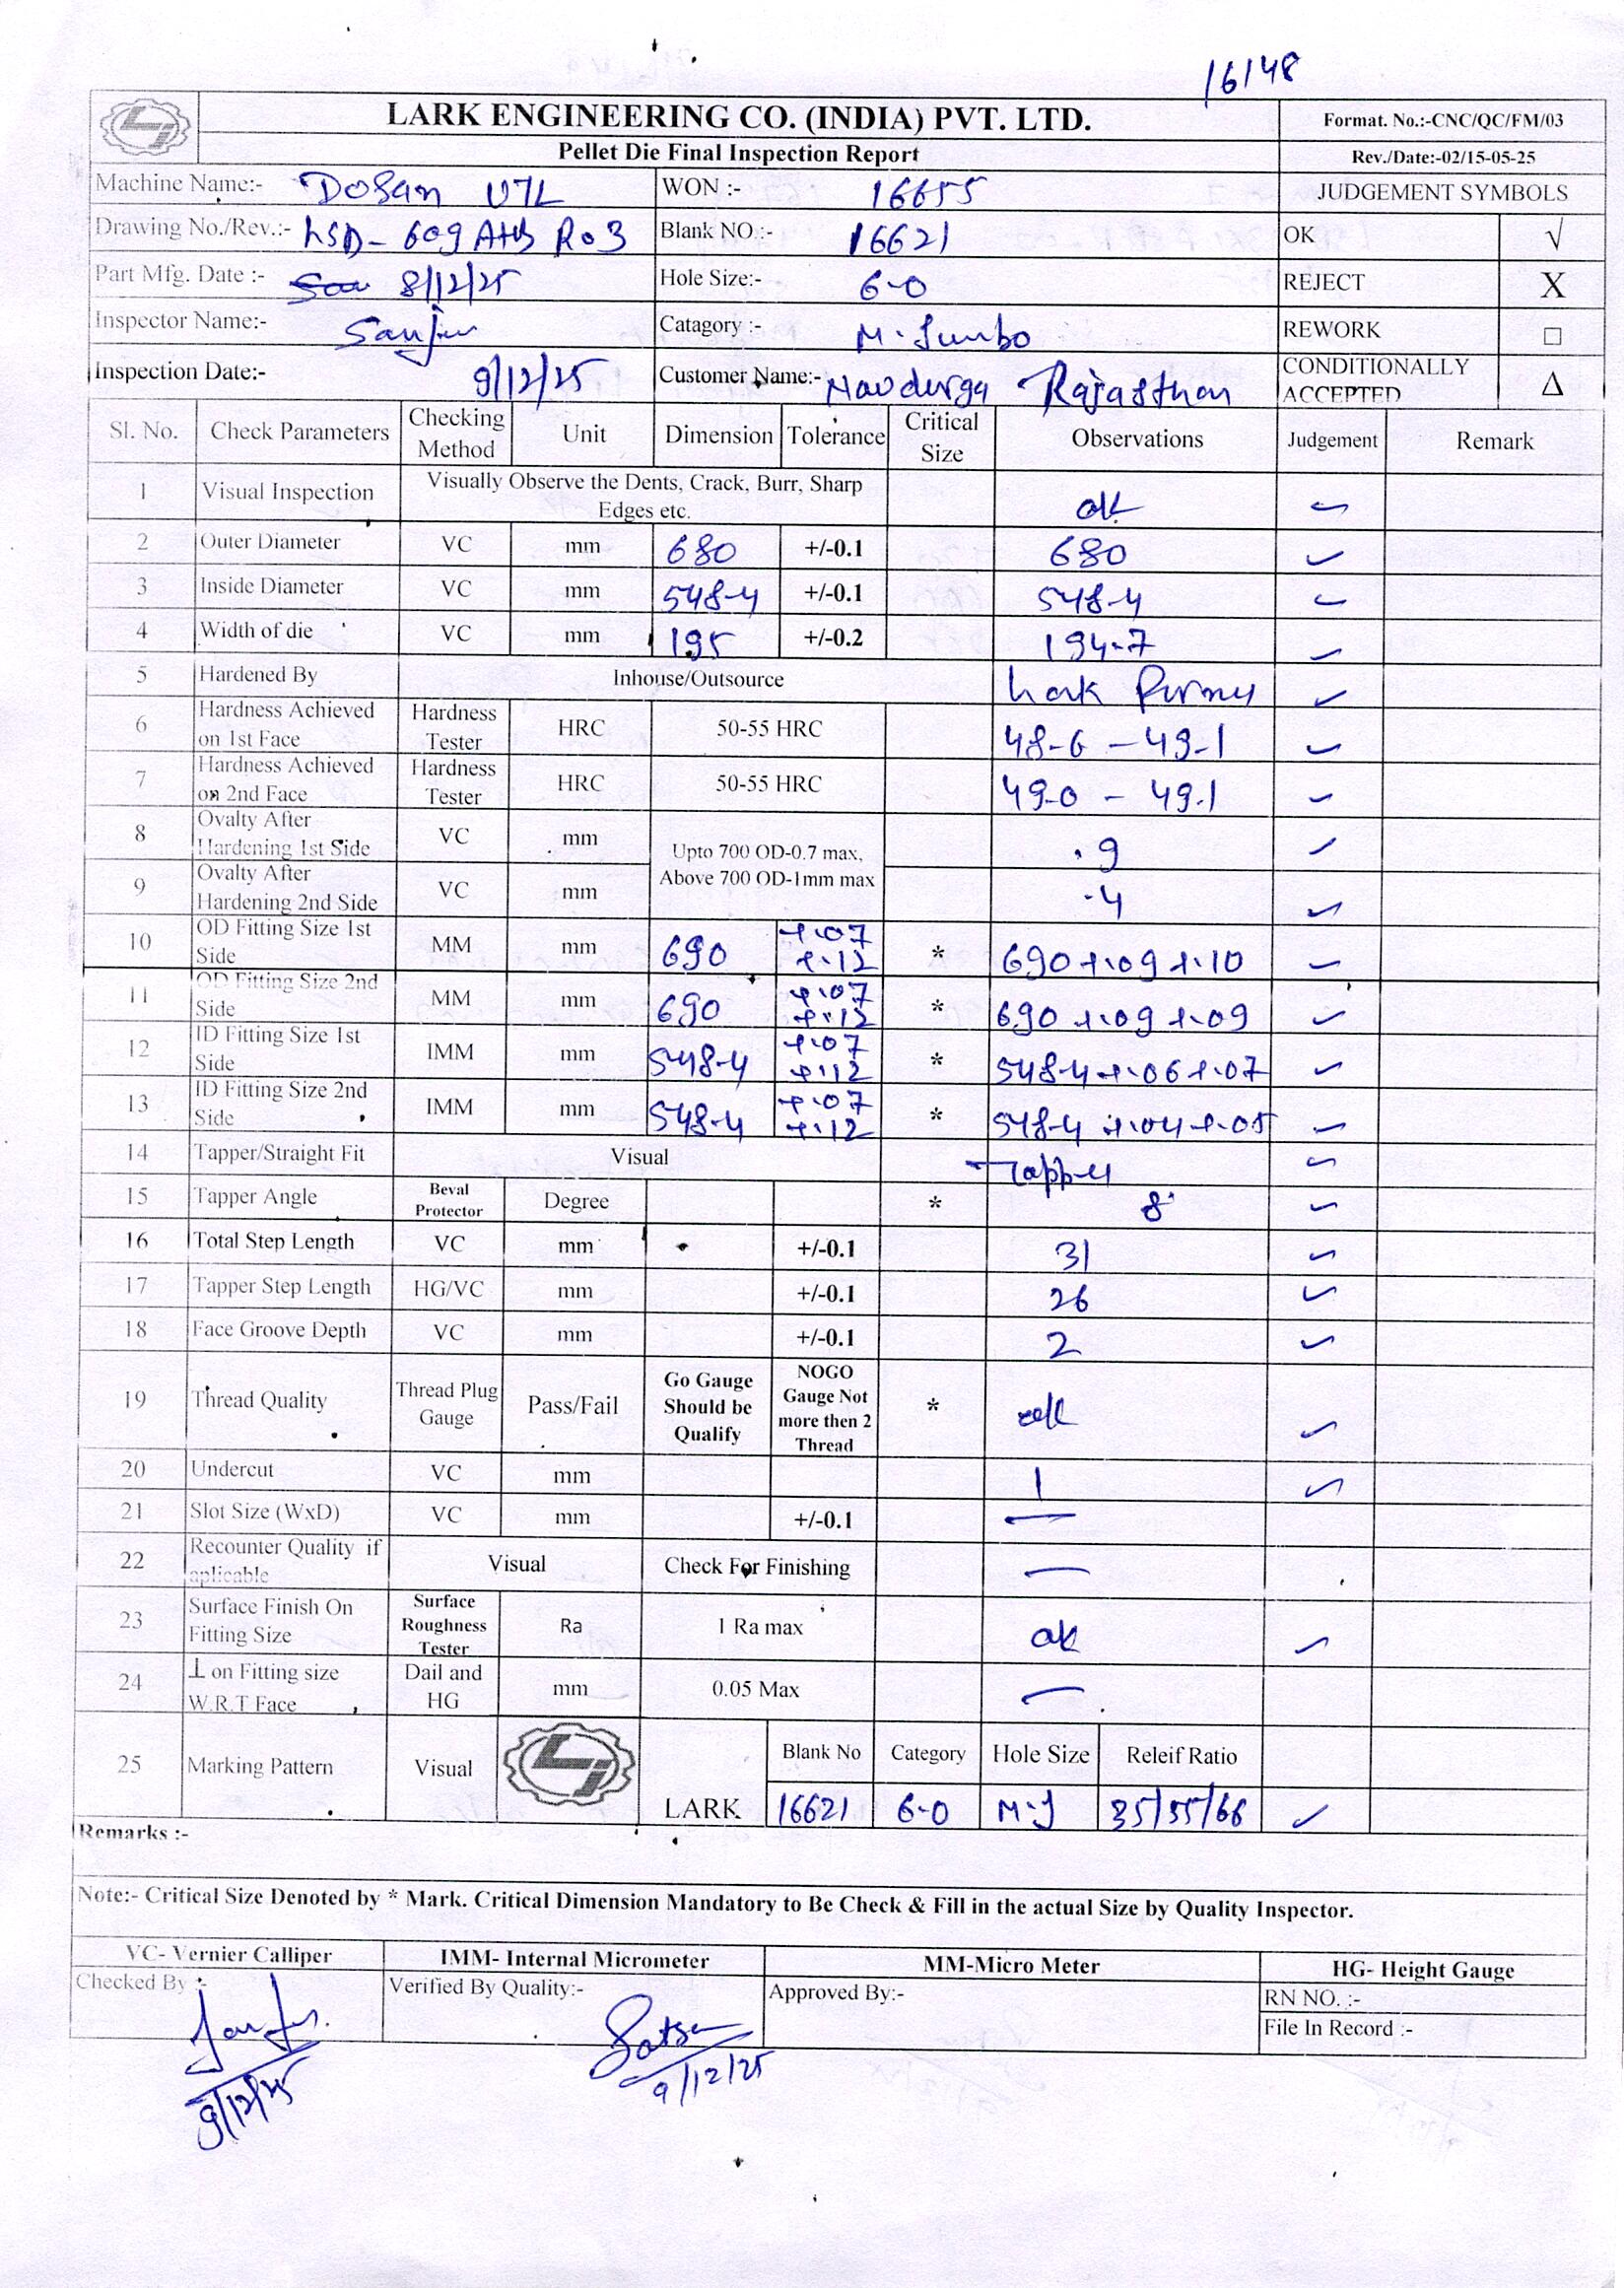 16148
LARK ENGINEERING CO. (INDIA) PVT. LTD.
Format. No.:-CNC/QC/FM/03
Pellet Die Final Inspection Report
Rev./Date:-02/15-05-25
Machine Name:- DoSan VTL WON :- 16655 JUDGEMENT SYMBOLS
Drawing No./Rev.:- LSD- 609 R03 Blank NO.:- 16621 OK √
Part Mfg. Date :- 8/12/25 Hole Size:- 6-0 REJECT X
Inspector Name:- Sanju Catagory :- M. Jumbo REWORK □
Inspection Date:- 9/12/25 Customer Name:- Navdurga Rajasthan CONDITIONALLY ACCEPTED Δ
Sl. No. Check Parameters Checking Method Unit Dimension Tolerance Critical Size Observations Judgement Remark
1 Visual Inspection Visually Observe the Dents, Crack, Burr, Sharp Edges etc. ok ✓
2 Outer Diameter VC mm 680 +/-0.1 680 ✓
3 Inside Diameter VC mm 548-4 +/-0.1 548-4 ✓
4 Width of die VC mm 195 +/-0.2 194-7 ✓
5 Hardened By Inhouse/Outsource Lark ✓
6 Hardness Achieved on 1st Face Hardness Tester HRC 50-55 HRC 48-6 - 49-1 ✓
7 Hardness Achieved on 2nd Face Hardness Tester HRC 50-55 HRC 49-0 - 49.1 ✓
8 Ovalty After Hardening 1st Side VC mm Upto 700 OD-0.7 max, Above 700 OD-1mm max .9 ✓
9 Ovalty After Hardening 2nd Side VC mm .4 ✓
10 OD Fitting Size 1st Side MM mm 690 +.07 +.12 * 690 +.09 +.10 ✓
11 OD Fitting Size 2nd Side MM mm 690 +.07 +.12 * 690 +.09 +.09 ✓
12 ID Fitting Size 1st Side IMM mm 548-4 +.07 +.12 * 548-4 +.06 +.07 ✓
13 ID Fitting Size 2nd Side IMM mm 548-4 +.07 +.12 * 548-4 +.04 +.05 ✓
14 Tapper/Straight Fit Visual Tapper ✓
15 Tapper Angle Beval Protector Degree * 8° ✓
16 Total Step Length VC mm +/-0.1 31 ✓
17 Tapper Step Length HG/VC mm +/-0.1 26 ✓
18 Face Groove Depth VC mm +/-0.1 2 ✓
19 Thread Quality Thread Plug Gauge Pass/Fail Go Gauge Should be Qualify NOGO Gauge Not more then 2 Thread * ok ✓
20 Undercut VC mm 1 ✓
21 Slot Size (WxD) VC mm +/-0.1 —
22 Recounter Quality if aplicable Visual Check For Finishing —
23 Surface Finish On Fitting Size Surface Roughness Tester Ra 1 Ra max ok ✓
24 ⊥ on Fitting size W.R.T Face Dail and HG mm 0.05 Max —
25 Marking Pattern Visual LARK Blank No Category Hole Size Releif Ratio
16621 6-0 M.J 35/55/66 ✓
Remarks :-
Note:- Critical Size Denoted by * Mark. Critical Dimension Mandatory to Be Check & Fill in the actual Size by Quality Inspector.
VC- Vernier Calliper IMM- Internal Micrometer MM-Micro Meter HG- Height Gauge
Checked By :- Verified By Quality:- Approved By:- RN NO. :-
File In Record :-
9/12/25 9/12/25